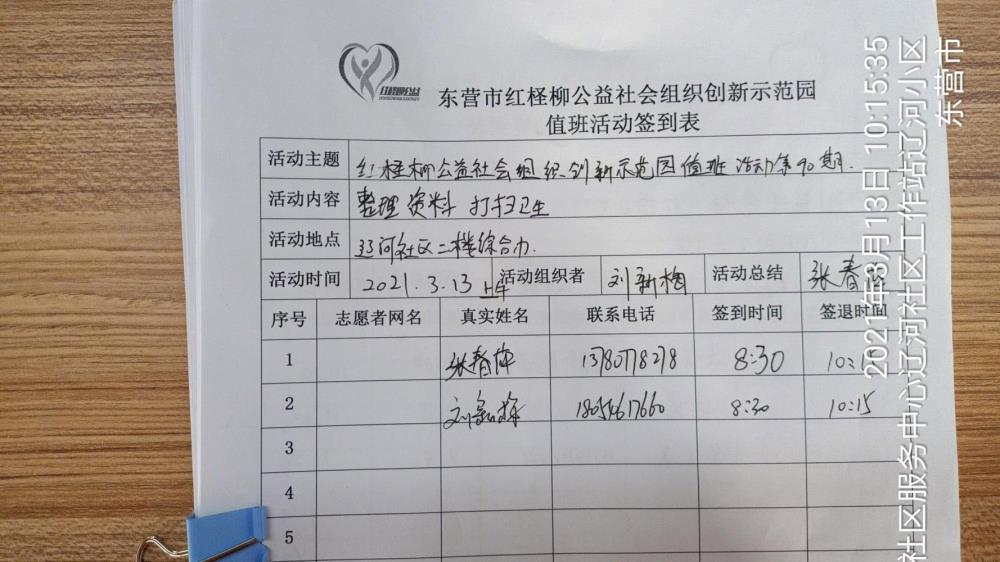 红柽柳公益
东营市红柽柳公益社会组织创新示范园
值班活动签到表
活动主题 红柽柳公益社会组织创新示范园值班活动第90期.
活动内容 整理资料 打扫卫生
活动地点 辽河社区二楼综合办.
活动时间 2021.3.13上午 活动组织者 刘新梅 活动总结 张春萍
序号 志愿者网名 真实姓名 联系电话 签到时间 签退时间
1 张春萍 13780778278 8:30 10:
2 18054617660 8:30 10:15
3
4
5
2021年3月13日 10:15:35
社区服务中心辽河社区工作站辽河小区
东营市